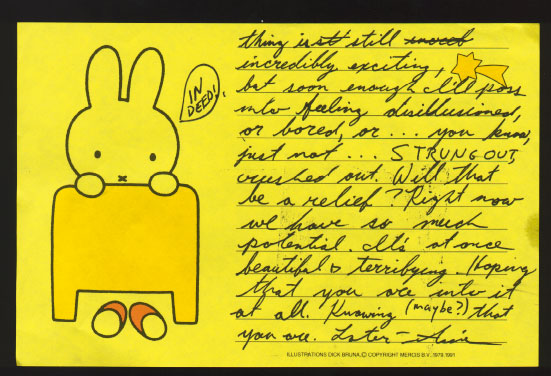 IN
DEED!
thing is still
incredibly exciting,
but soon enough I'll pass
into feeling disillusioned,
or bored, or ... you know,
just not ... STRUNG OUT,
crushed out. Will that
be a relief? Right now
we have so much
potential. It's at once
beautiful & terrifying. Hoping
that you are into it
at all. Knowing (maybe?) that
you are. Later -
ILLUSTRATIONS DICK BRUNA, © COPYRIGHT MERCIS B.V. 1979, 1991